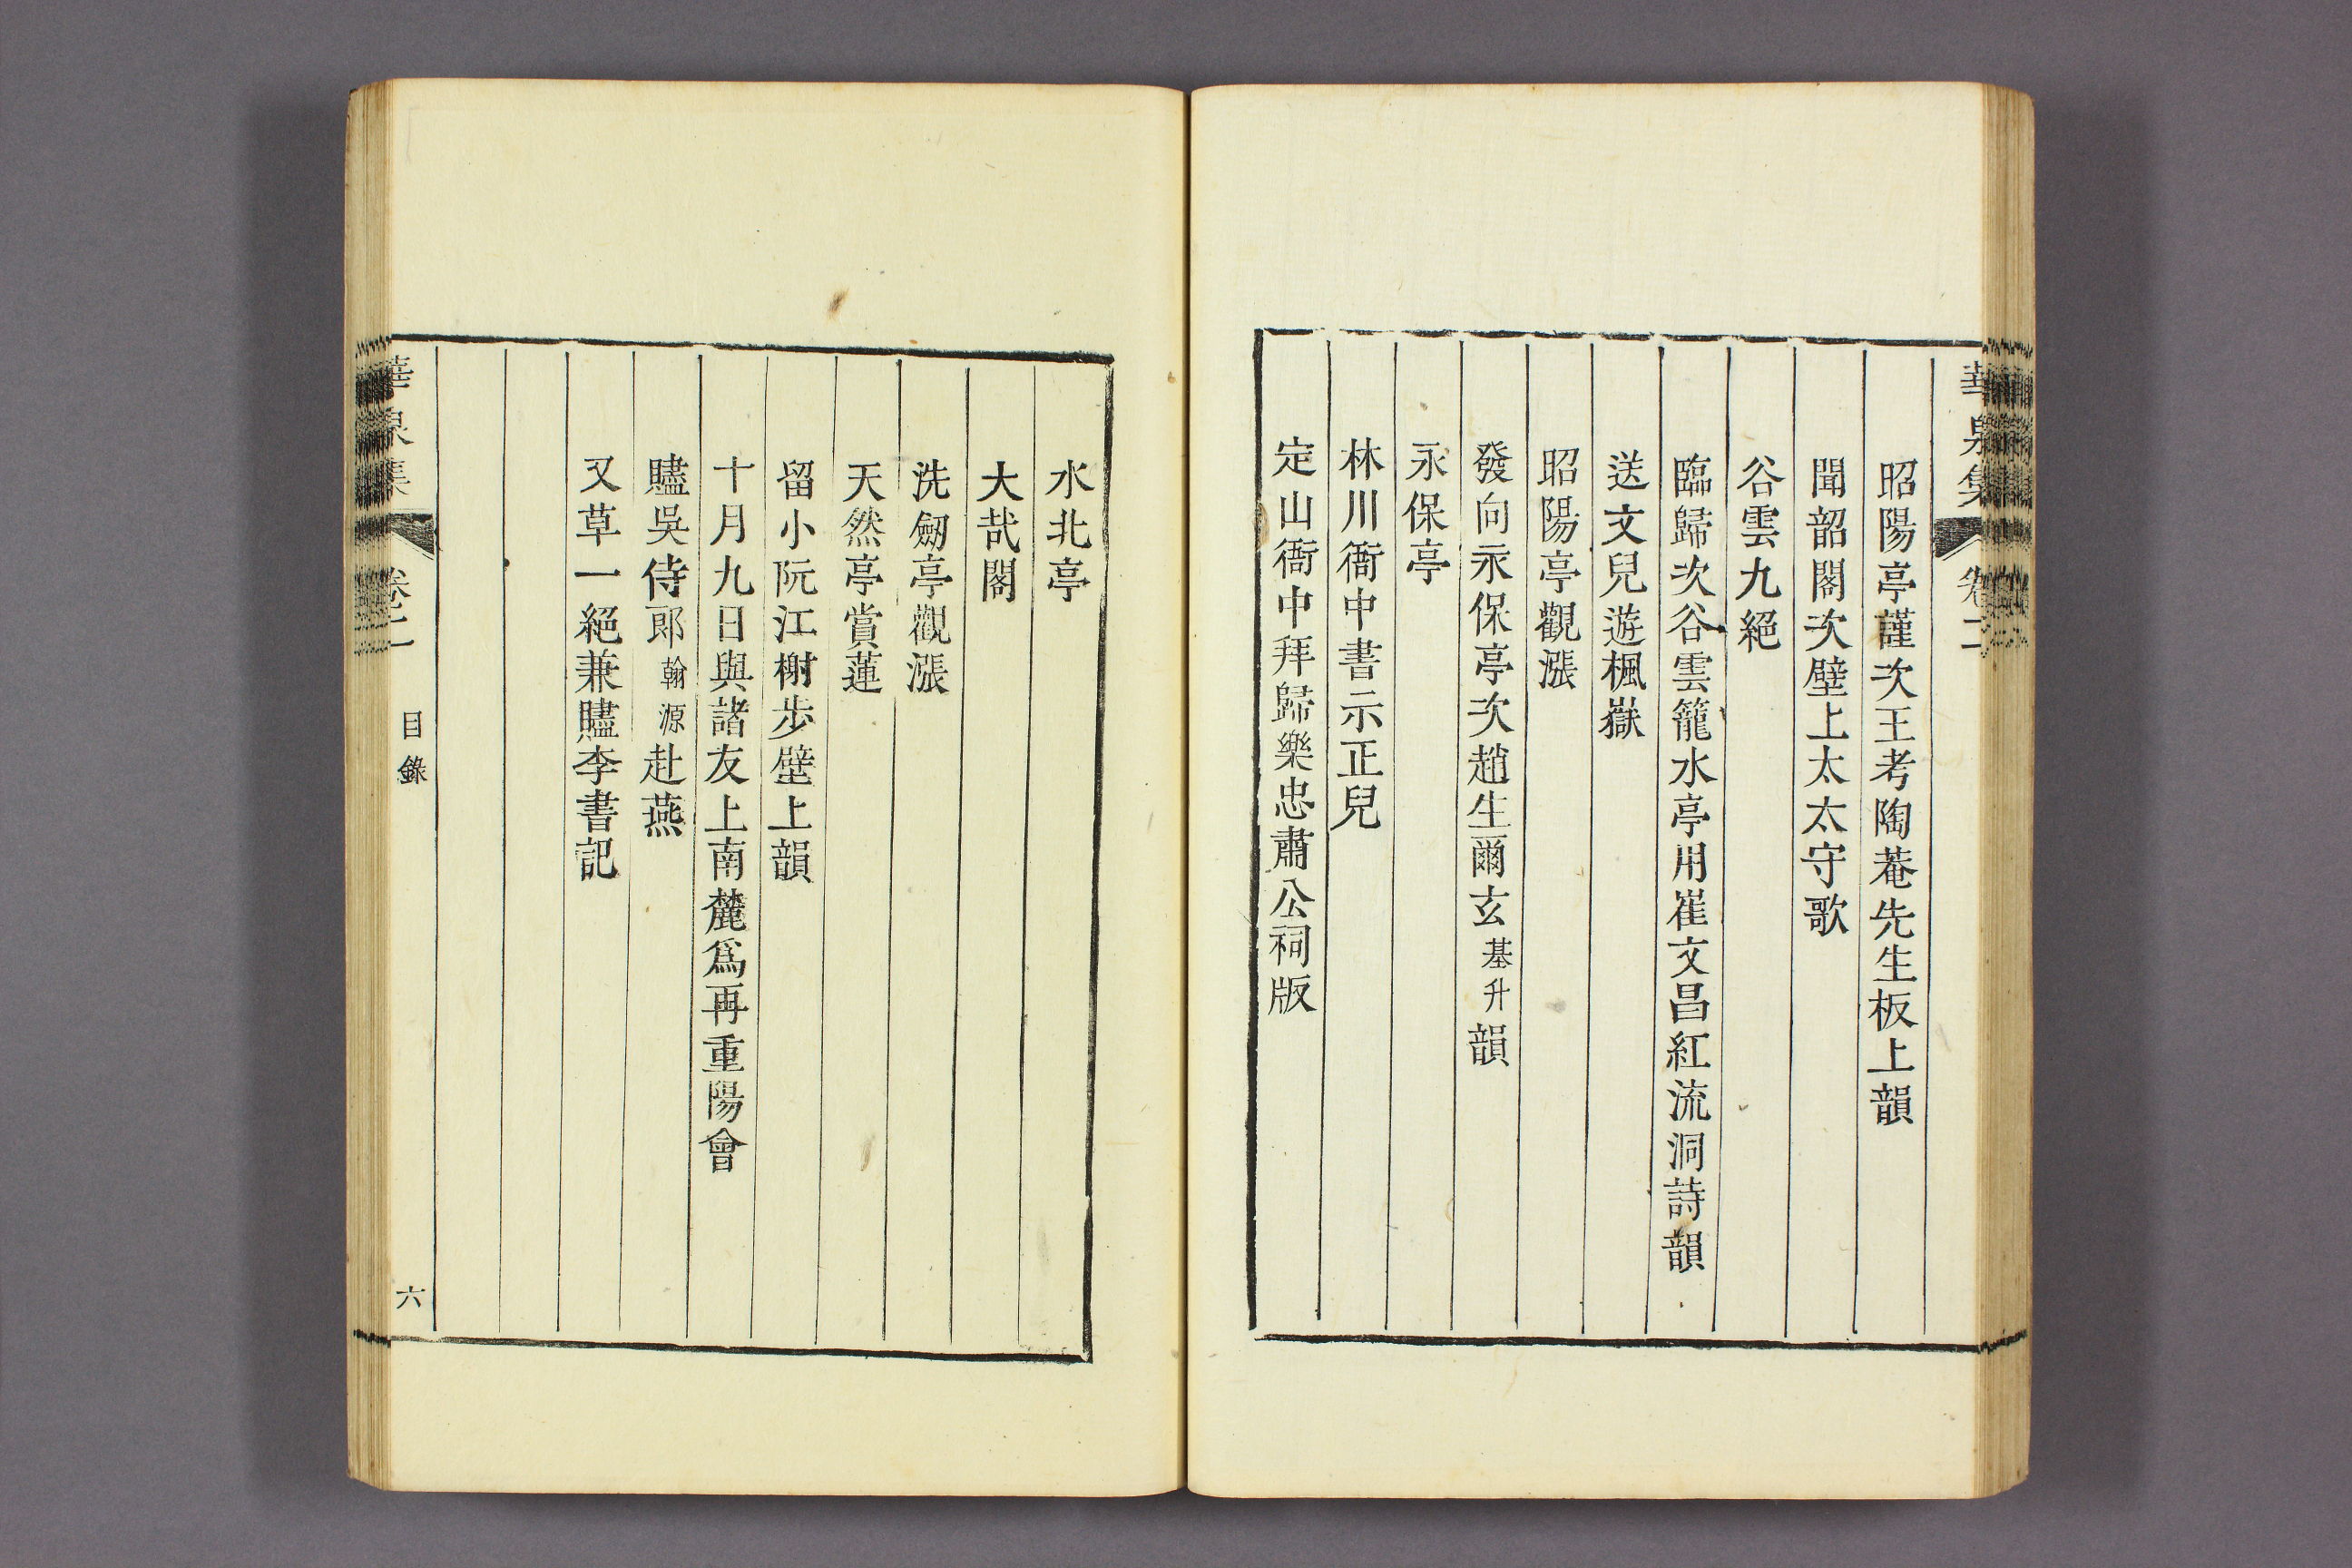 華泉集 卷二
昭陽亭謹次王考陶菴先生板上韻
聞韶閣次壁上太太守歌
谷雲九絕
臨歸次谷雲籠水亭用崔文昌紅流洞詩韻
送文兒遊楓嶽
昭陽亭觀漲
發向永保亭次趙生爾玄基升韻
永保亭
林川衙中書示正兒
定山衙中拜歸樂忠肅公祠版
水北亭
大哉閣
洗劒亭觀漲
天然亭賞蓮
留小阮江榭步壁上韻
十月九日與諸友上南麓爲再重陽會
贐吳侍郞翰源赴燕
又草一絕兼贐李書記
華泉集 卷二 目錄 六